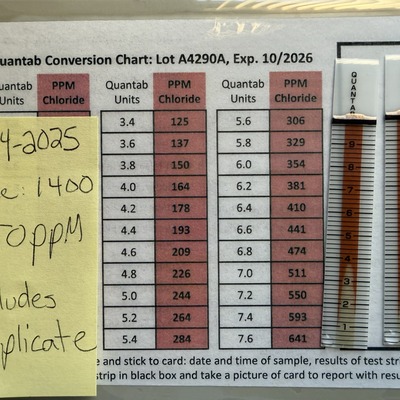 uantab Conversion Chart: Lot A4290A, Exp. 10/2026
uantab Units PPM Chloride Quantab Units PPM Chloride Quantab Units PPM Chloride
3.4 125 5.6 306
3.6 137 5.8 329
3.8 150 6.0 354
4.0 164 6.2 381
4.2 178 6.4 410
4.4 193 6.6 441
4.6 209 6.8 474
4.8 226 7.0 511
5.0 244 7.2 550
5.2 264 7.4 593
5.4 284 7.6 641
4-2025
e: 1400
0 ppM
ludes
plicate
e and stick to card: date and time of sample, results of test stri
strip in black box and take a picture of card to report with resu
QUANTAB
9
8
7
6
5
4
3
2
1